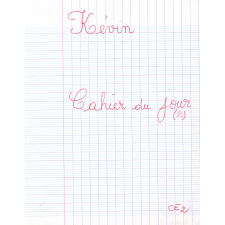 Kévin
Cahier du jour
(2)
CE2